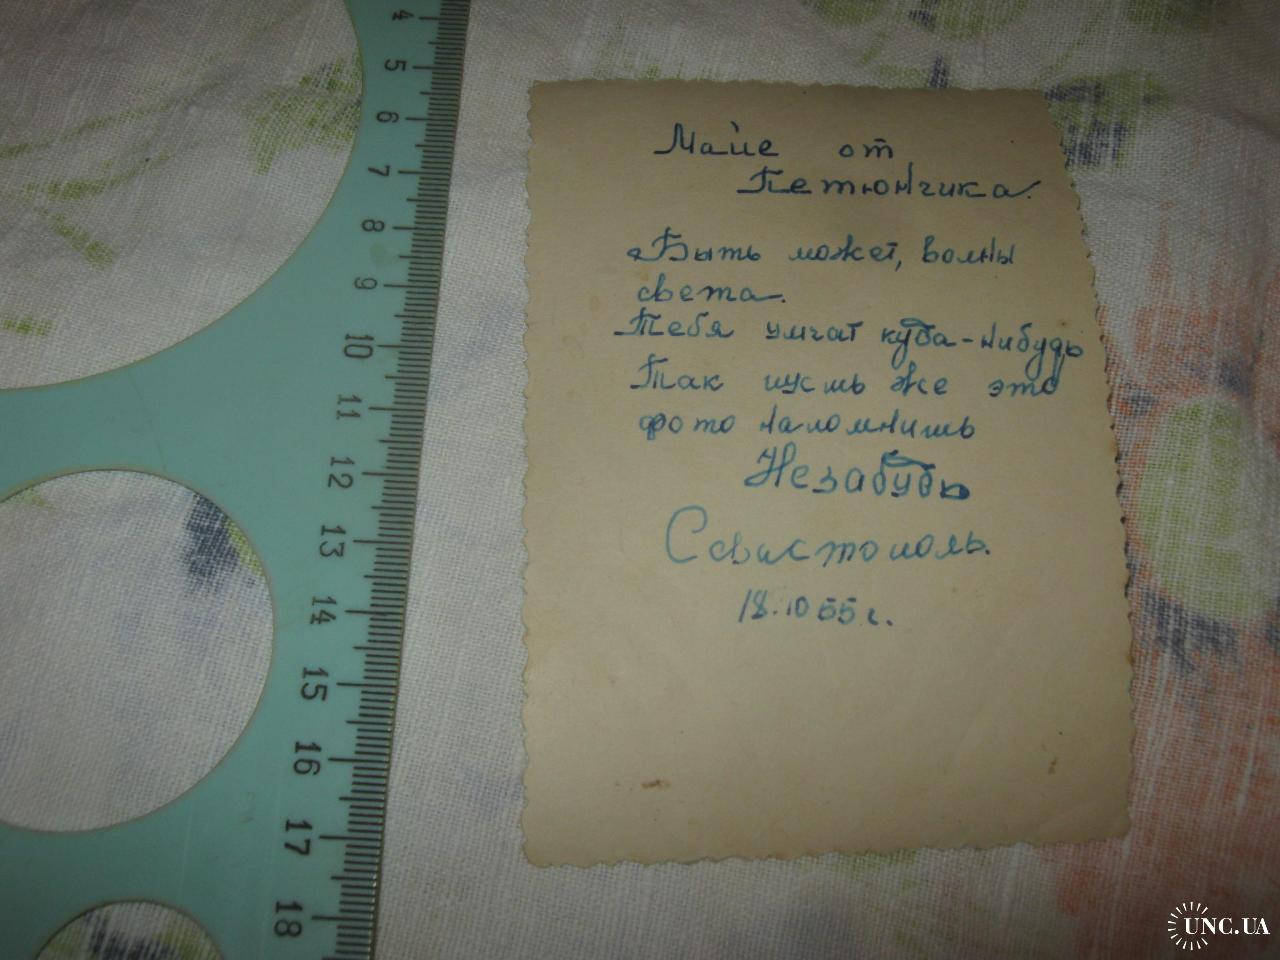 4
5
6
7
8
9
10
11
12
13
14
15
16
17
18
Майе от
Петюнчика.
Быть может, волны
света.
Тебя умчат куда-нибудь
Так пусть же это
фото напомнишь
Незабудь
Севастополь.
18.10 55 г.
UNC.UA